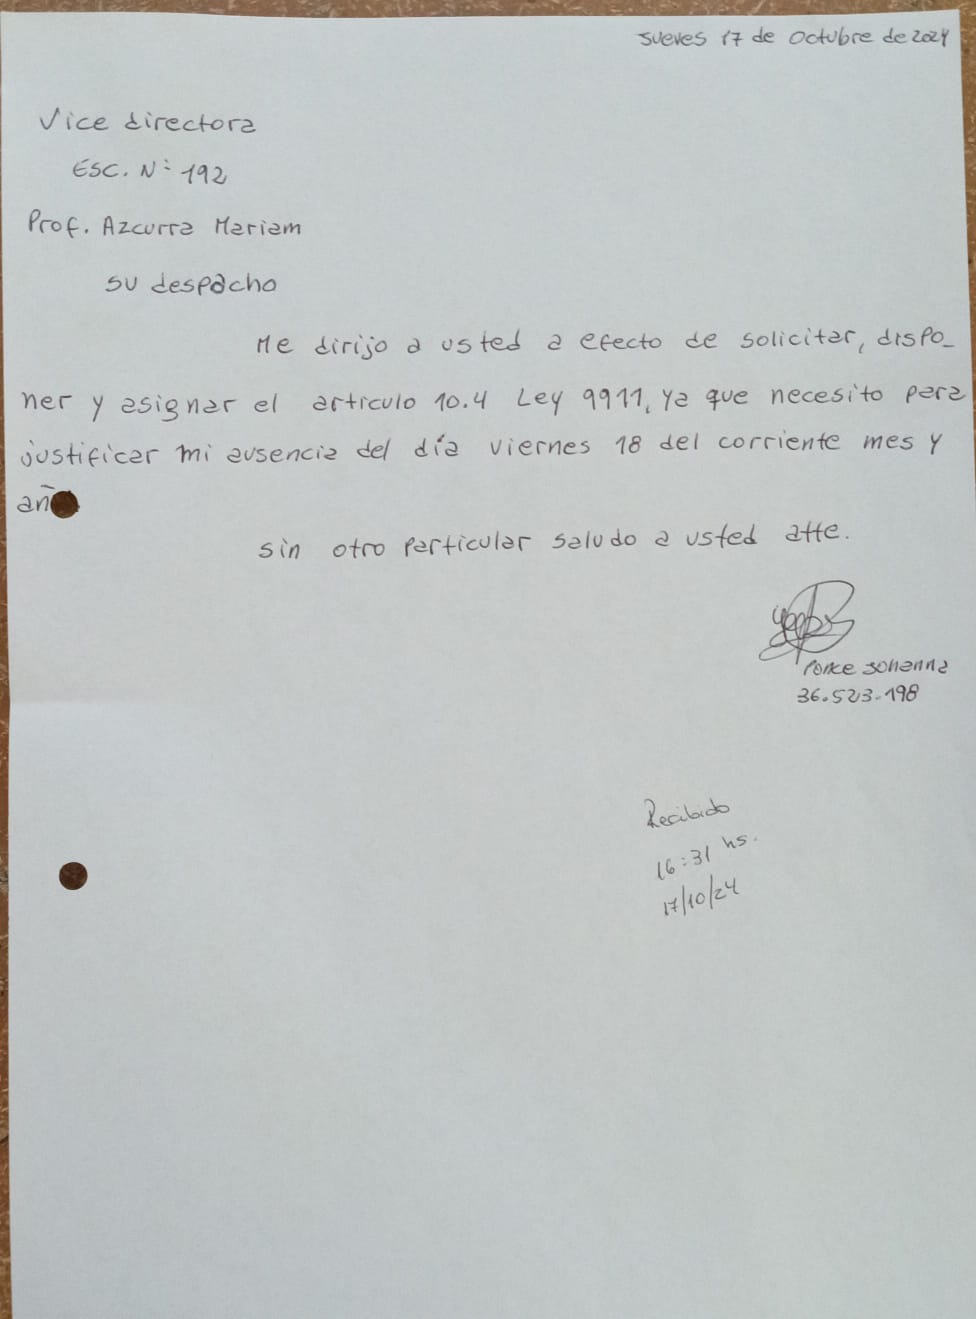 Jueves 17 de Octubre de 2024
Vice directora
ESC. N: 192
Prof. Azcurra Mariam
su despacho
Me dirijo a usted a efecto de solicitar, dispo_
ner y asignar el artículo 10.4 Ley 9911, ya que necesito para
justificar mi ausencia del día viernes 18 del corriente mes y
añ
sin otro particular saludo a usted atte.
Ponce Johanna
36.523.198
Recibido
16:31 hs.
17/10/24